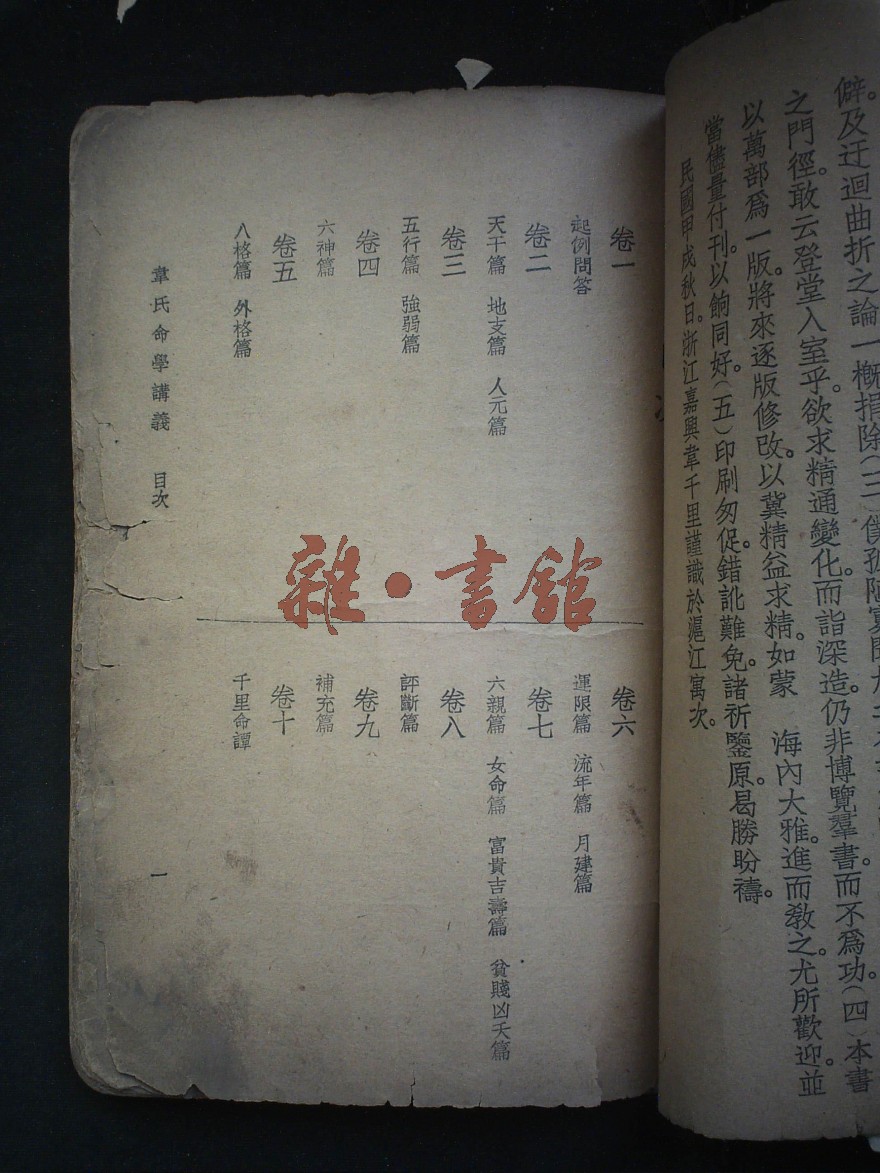 僻。及迂迴曲折之論一概捐除(三)僕孤陋寡聞
之門徑。敢云登堂入室乎。欲求精通變化。而詣深造。仍非博覽羣書。而不爲功。(四)本書
以萬部爲一版。將來逐版修改。以冀精益求精。如蒙 海內大雅。進而教之。尤所歡迎。並
當儘量付刊。以餉同好。(五)印刷匆促。錯訛難免。諸祈鑒原。曷勝盼禱。
民國甲戌秋日。浙江嘉興韋千里謹識於滬江寓次。
次
卷一
起例問答
卷二
天干篇 地支篇 人元篇
卷三
五行篇 強弱篇
卷四
六神篇
卷五
八格篇 外格篇
卷六
運限篇 流年篇 月建篇
卷七
六親篇 女命篇 富貴吉壽篇 貧賤凶夭篇
卷八
評斷篇
卷九
補充篇
卷十
千里命譚
韋氏命學講義 目次 一
雜·書館